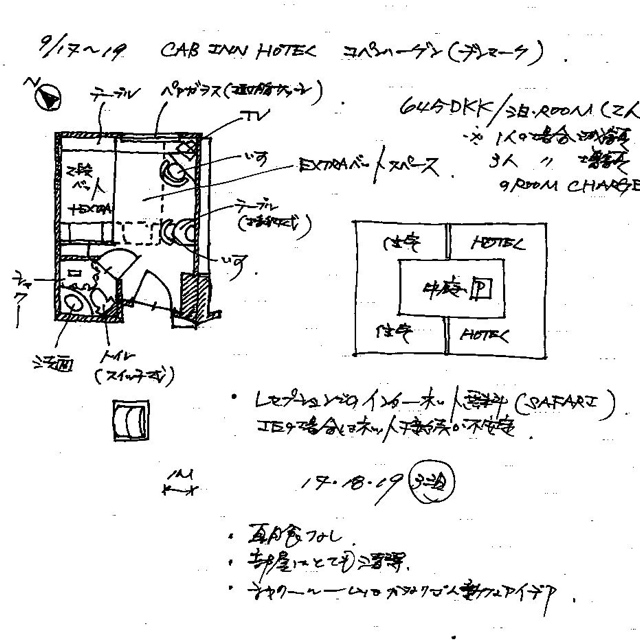 9/17~19 CAB INN HOTEL コペンハーゲン(デンマーク).
N
テーブル
ペアガラス(
TV
645DKK/泊・ROOM(2人
※ 1人の場合減額
3人 〃 増額
@ROOM CHARGE
2段
ベッド
+EXTRA
いす
EXTRAベットスペース.
テーブル
いす
シャワー
洗面
トイレ
(スイッチ式)
住宅 HOTEL
中庭 P
住宅 HOTEL
・レセプションでのインターネット無料(SAFARI)
IEの場合はネット接続が不安定.
1M
17・18・19 3泊
・夏 なし.
・部屋はとても清潔.
・シャワールーム アイデア.